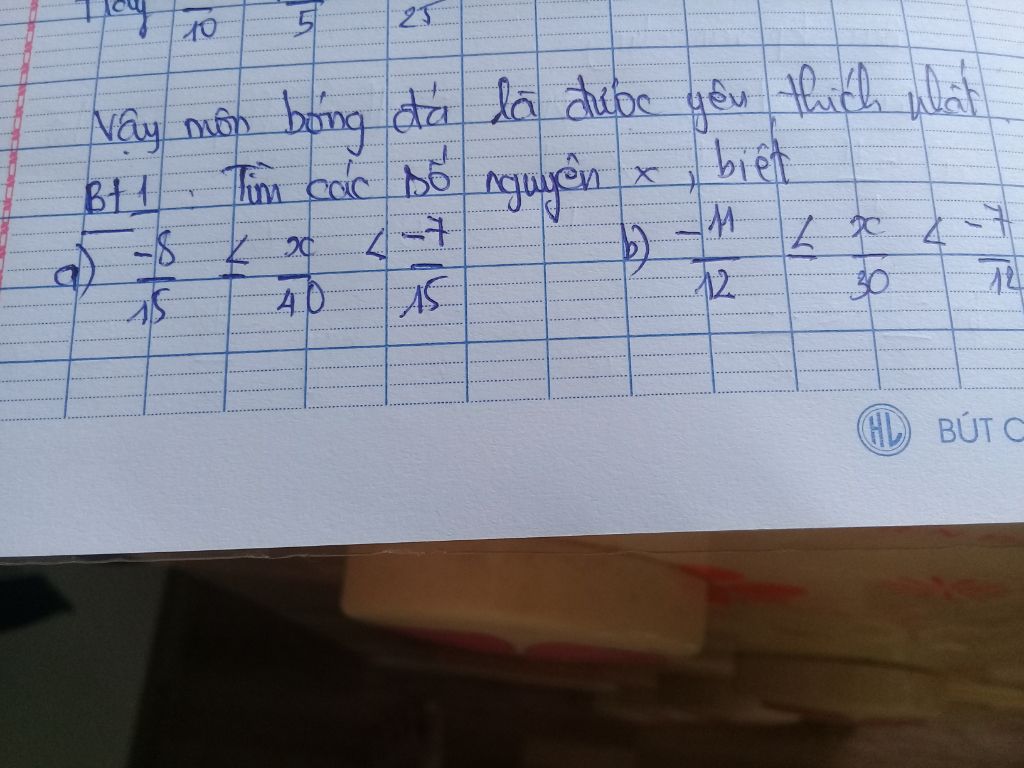 10 5 25
Vậy môn bóng đá là được yêu thích nhất.
Bt 1. Tìm các số nguyên x, biết
a) -8/15 ≤ x/40 < -7/15 b) -11/12 ≤ x/30 < -7/12
HL BÚT